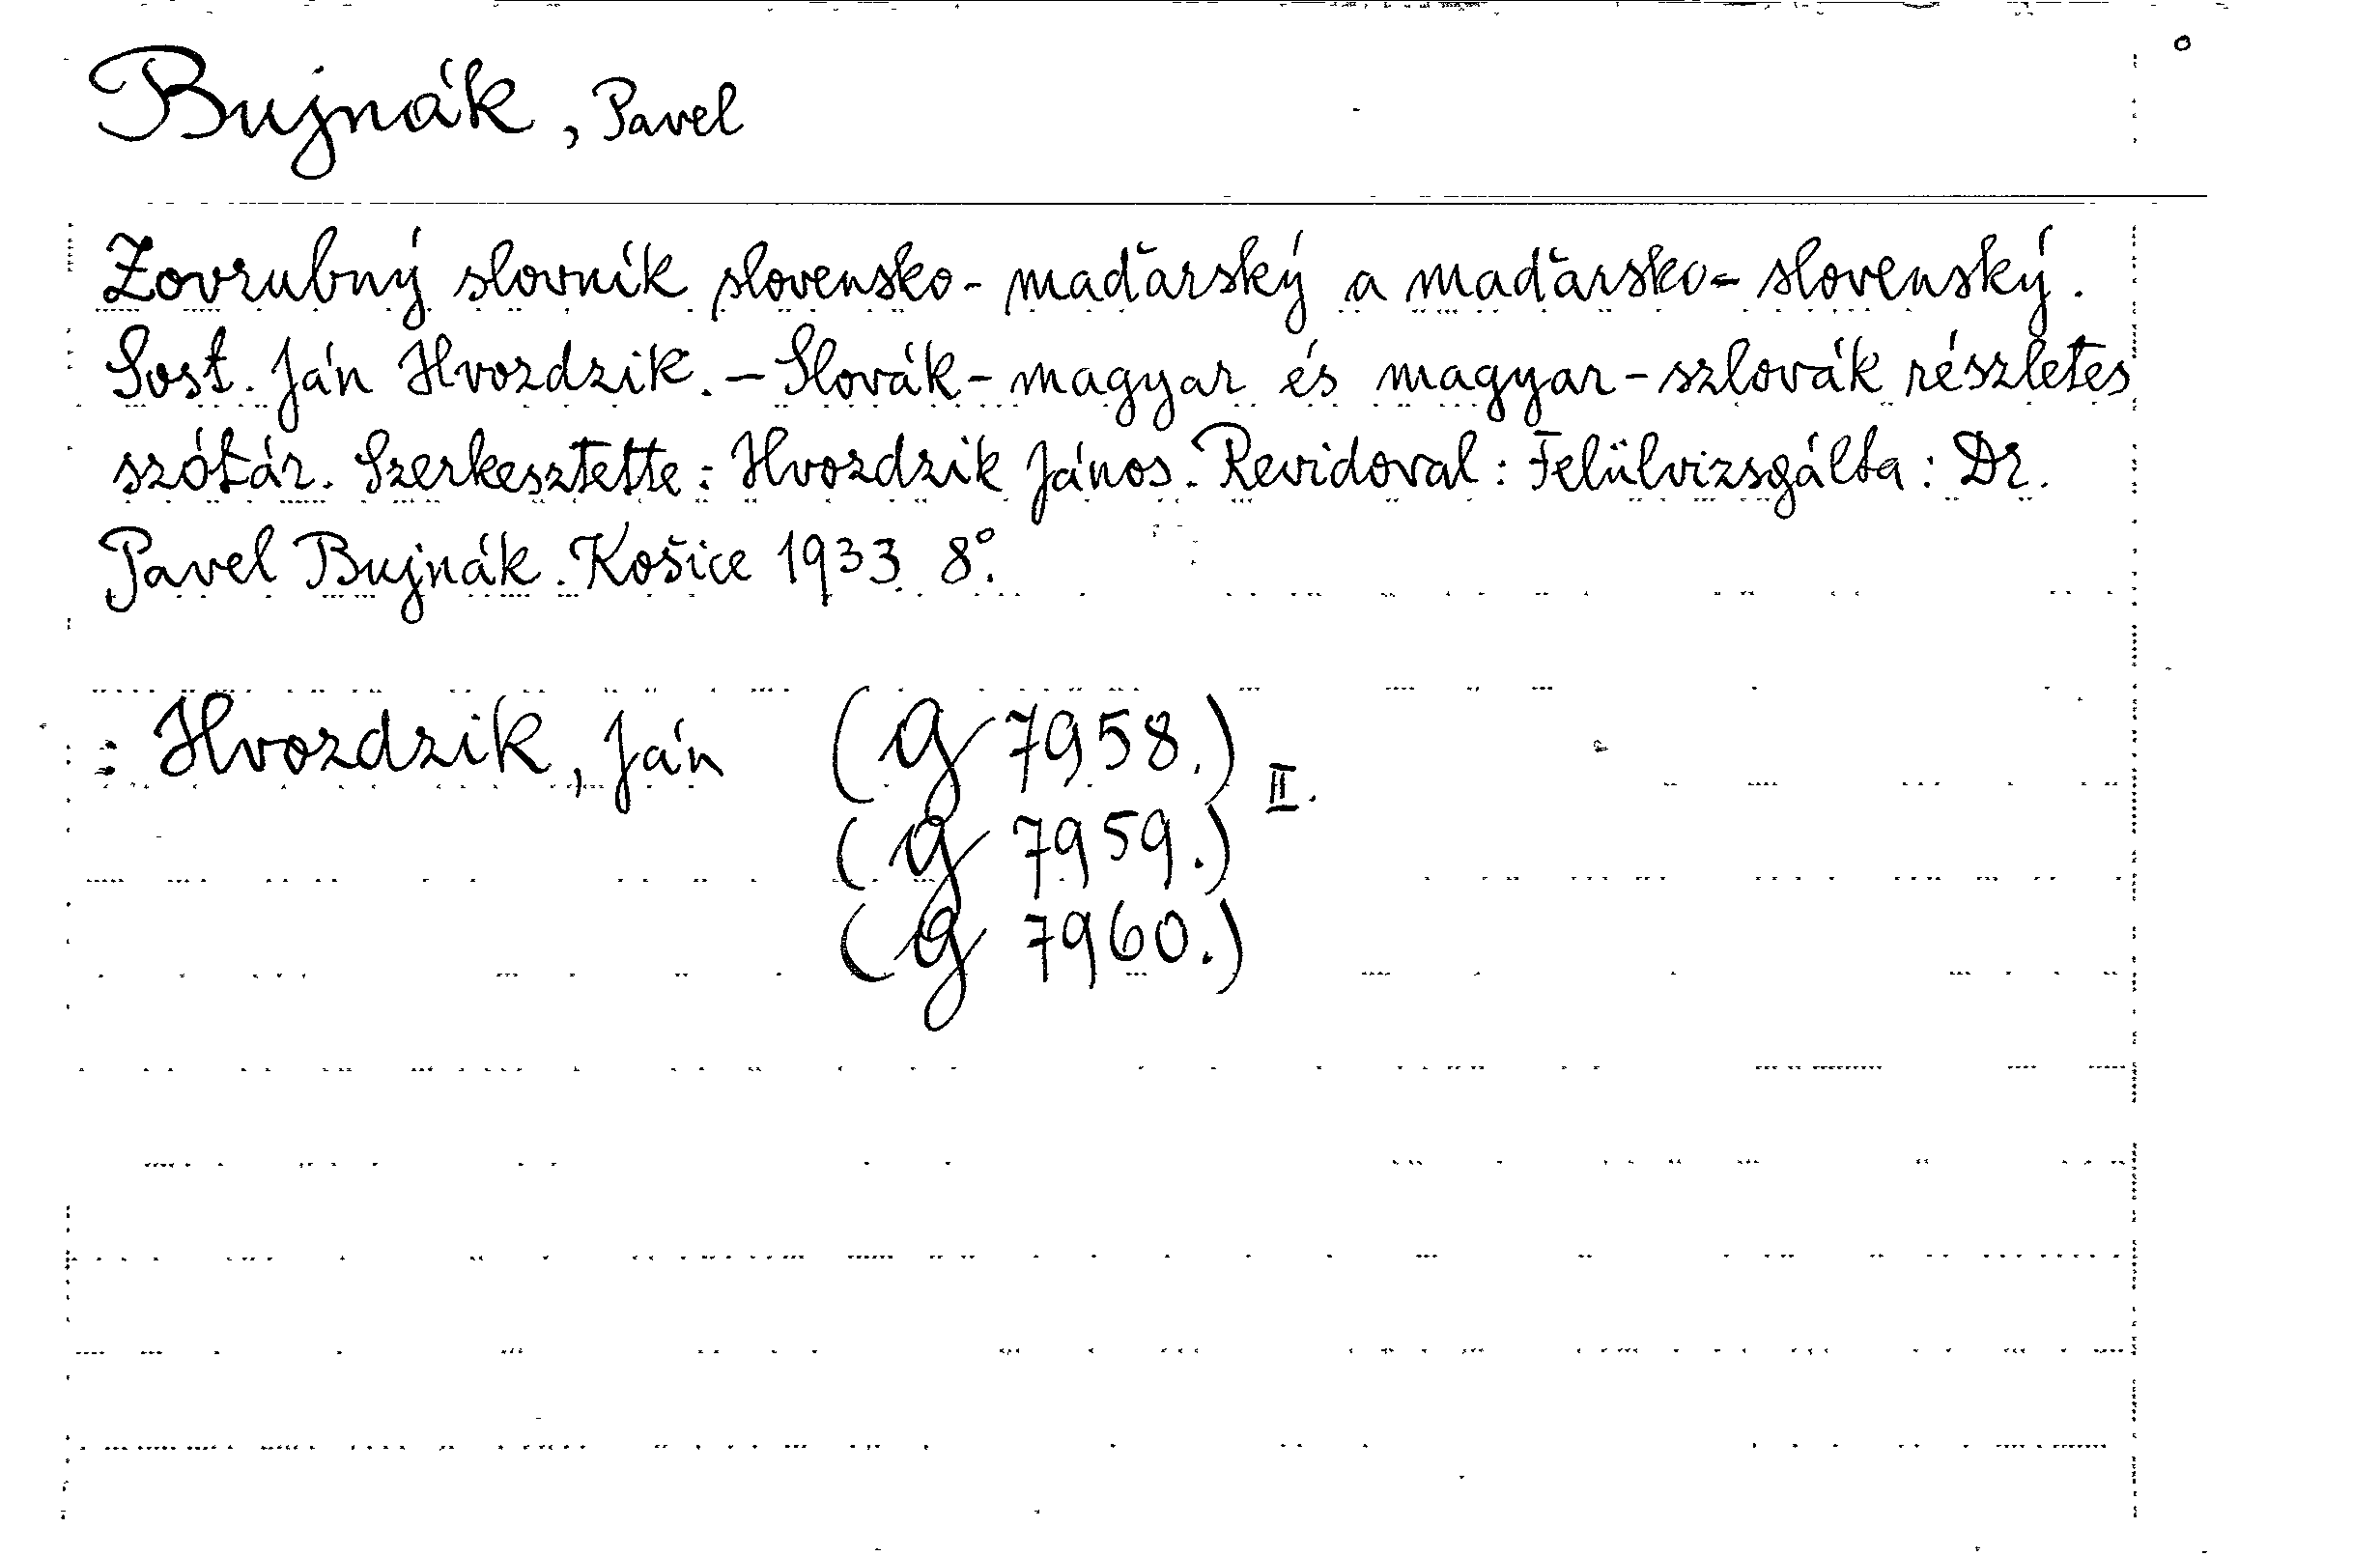 Bujnák, Pavel
Zovrubný slovník slovensko-maďarský a maďarsko-slovenský.
Sost. Ján Hvozdzik. – Slovák-magyar és magyar-szlovák részletes
szótár. Szerkesztette: Hvozdzik János. Revidoval: Felülvizsgálta: Dr.
Pavel Bujnák. Košice 1933 8°.
: Hvozdzik, Ján (g 7958.) II.
(g 7959.)
(g 7960.)